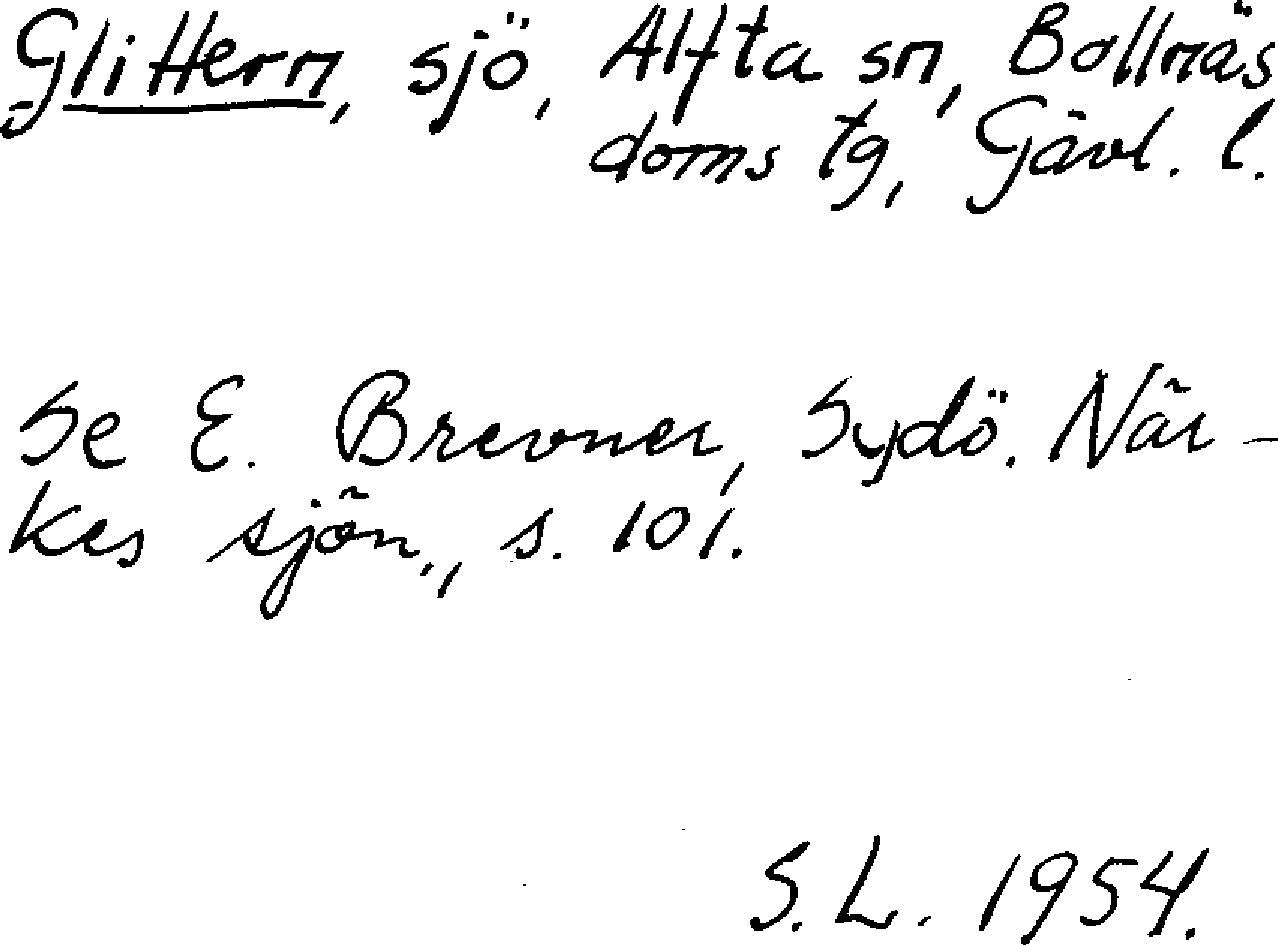 Glittern, sjö, Alfta sn, Bollnäs
doms tg, Gävl. l.
Se E. Brevner, Sydö. När-
kes sjön., s. 101.
S.L. 1954.